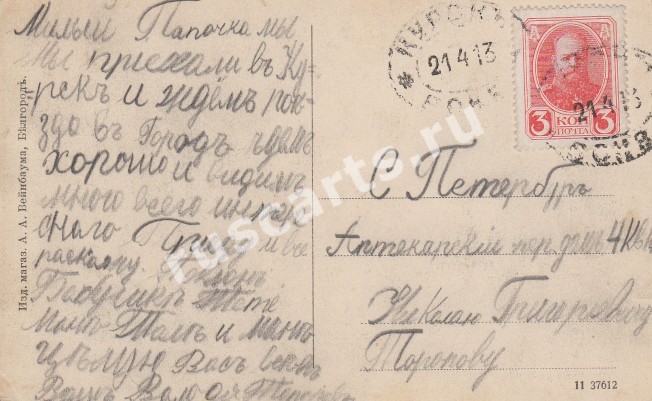 Милый Папочка мы
мы приехали въ Ку-
рскъ и ждемъ поѣ-
зда въ Городъ
хорошо и видимъ
много всего интере
снаго Приедем и все
раскажу.
Бабушкѣ Тетѣ
и
цѣлую Васъ
Вашъ
Изд. магаз. А. А. Вейнбаума, Бѣлгородъ.
КУРСКЪ
21 4 13
ВОКЗ
3 КОП 3
ПОЧТА
21.4.13
С Петербургъ
Аптекарскій пер. домъ 4 кв
Николаю Григорьевичу
Торопову
11 37612
ruscarts.ru